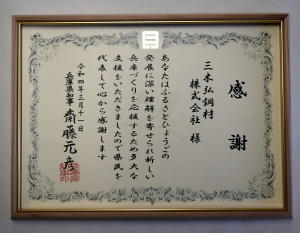 感謝
三木弘鋼材
株式会社 様
あなたはふるさとひょうごの
発展に深い理解を寄せられ新しい
兵庫づくりを応援するため多大な
支援をいただきましたので県民を
代表して心から感謝します
令和四年三月十一日
兵庫県知事 齋藤元彦